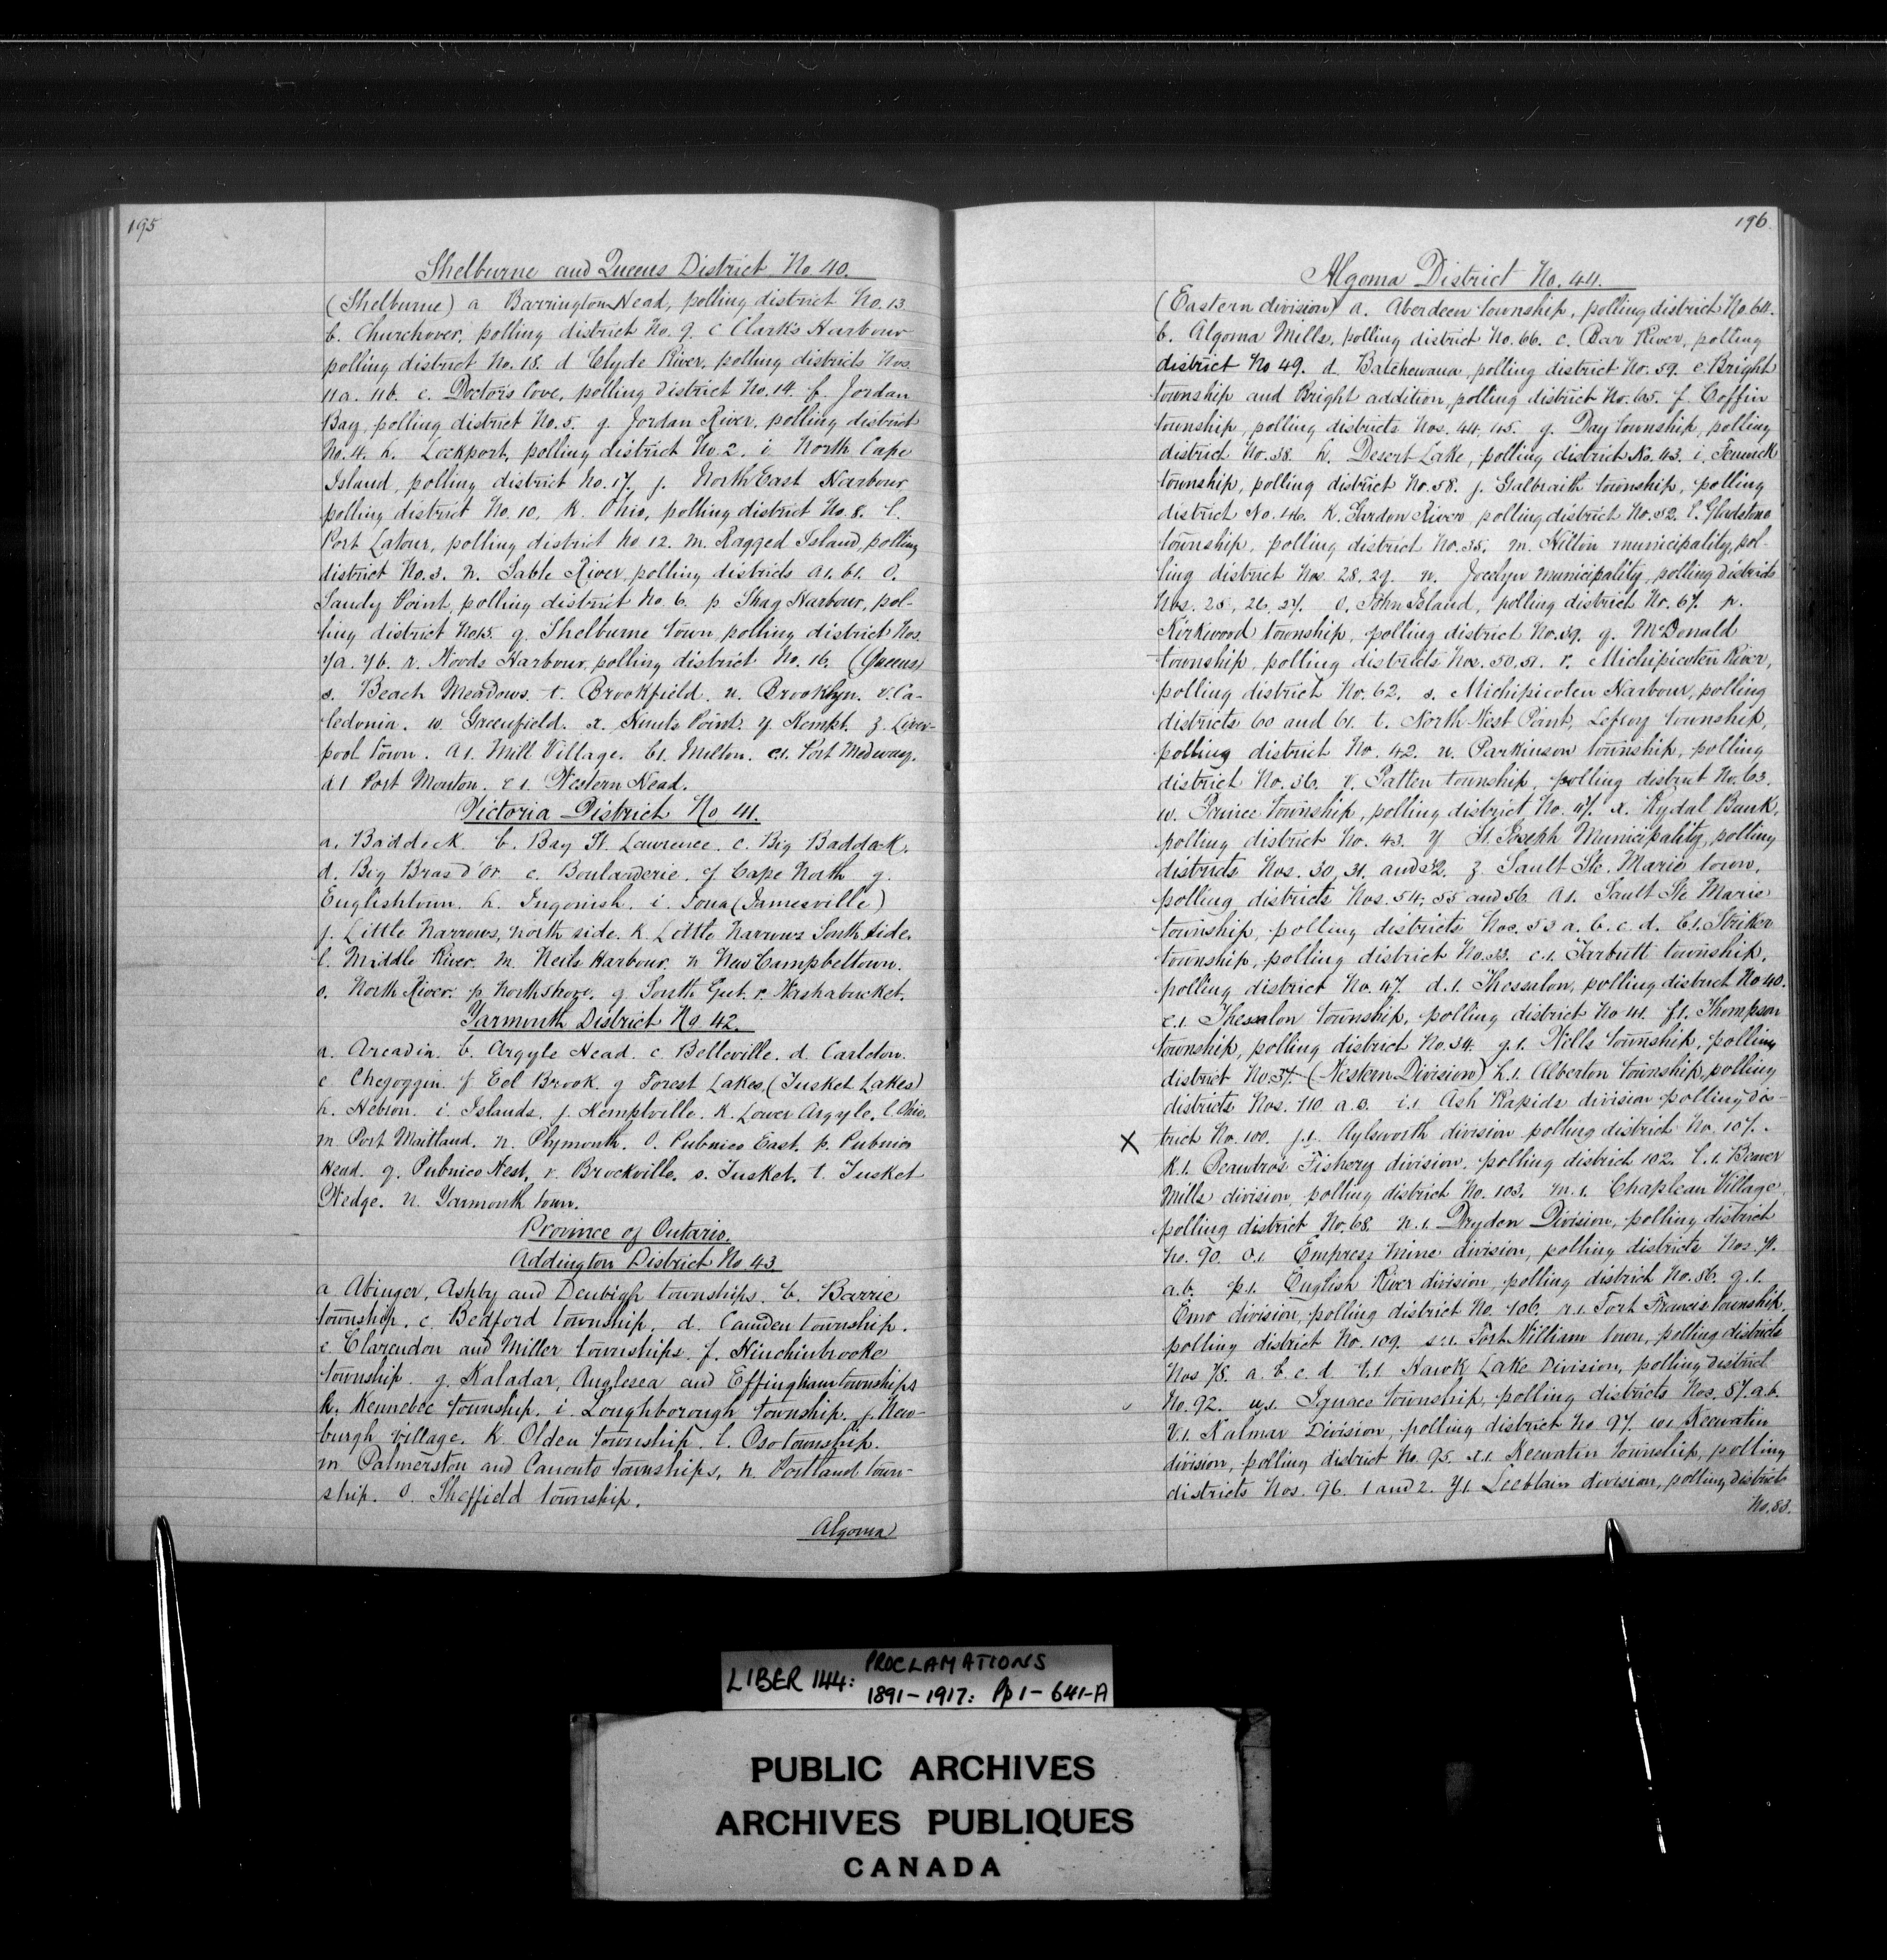 195
Shelburne and Queens District No 40.
(Shelburne) a Barrington Head, polling district No. 13
b. Churchover, polling district No. 9. c Clark's Harbour
polling district No. 18. d Clyde River, polling districts Nos.
11a. 11b. e. Doctor's Cove, polling district No. 14. f. Jordan
Bay, polling district No. 5. g. Jordan River, polling district
No. 4. h. Lockport, polling district No. 2. i North Cape
Island, polling district No. 17. j. North East Harbour
polling district No. 10. K. Ohio, polling district No. 8. l.
Port Latour, polling district No 12. m. Ragged Island, polling
district No. 3. n. Sable River, polling districts a1. b1. o.
Sandy Point, polling district No. 6. p Shag Harbour, pol-
ling district No 15. q. Shelburne town, polling district Nos.
7a. 7b. r. Woods Harbour, polling district No. 16. (Queens)
s. Beach Meadows. t. Brookfield. u. Brooklyn. v. Ca-
ledonia. w. Greenfield. x. Hunts Point. y. Kempt. z. Liver-
pool town. a1. Mill Village. b1. Milton. c1. Port Medway.
d1 Port Mouton. e1. Western Head.
Victoria District No 41.
a. Baddeck. b. Bay St. Lawrence. c. Big Baddack.
d. Big Bras d'Or. e. Boularderie. f Cape North g.
Englishtown. h. Ingonish. i. Iona (Jamesville)
j. Little Narrows, north side. K. Little Narrows South side.
l. Middle River. m. Neils Harbour. n New Campbeltown.
o. North River. p North shore. q South Gut. r. Washabucket.
Yarmouth District No. 42.
a. Arcadia. b. Argyle Head. c. Belleville. d. Carleton.
e Chegoggin. f Eel Brook. g Forest Lakes (Tusket Lakes)
h. Hebron. i. Islands. j. Kemptville. K. Lower Argyle. l. Ohio.
m Port Maitland. n. Plymouth. o. Pubnico East. p. Pubnico
Head. q. Pubnico West. r. Brockville. s. Tusket. t. Tusket
Wedge. u. Yarmouth town.
Province of Ontario.
Addington District No. 43
a Abinger, Ashby and Denbigh townships. b. Barrie
township. c. Bedford township. d. Camden township.
e Clarendon and Miller townships. f. Hinchinbrooke
township. g. Kaladar, Anglesea and Effingham townships
h. Kennebec township. i. Loughborough township. j. New-
burgh village. K. Olden township. l. Oso township.
m Palmerston and Canonto townships, n Portland town-
ship. o. Sheffield township.
Algoma
196
Algoma District No. 44.
(Eastern division) a. Aberdeen township, polling district No. 64.
b. Algoma Mills, polling district No. 66. c. Bar River, polling
district No 49. d. Batchewana, polling district No. 59. e. Bright
township and Bright addition, polling district No. 65. f. Coffin
township, polling districts Nos. 44, 45. g. Day township, polling
district No. 38. h. Desert Lake, polling district No. 43. i. Fenwick
township, polling district No. 58. j. Galbraith township, polling
district No. 46. K. Garden River, polling district No. 52. l. Gladstone
township, polling district No. 35. m. Hilton municipality, pol-
ling district Nos. 28, 29. n. Jocelyn Municipality, polling districts
Nos. 25, 26, 27. o. John Island, polling district No. 67. p.
Kirkwood township, polling district No. 39. q. McDonald
township, polling districts Nos. 50, 51. r. Michipicoten River,
polling district No. 62. s. Michipicoten Harbour, polling
districts 60 and 61. t. North West Point, Lefroy township,
polling district No. 42. u. Parkinson township, polling
district No. 36. v. Patten township, polling district No. 63.
w. Prince township, polling district No. 47. x. Rydal Bank,
polling district No. 43. y St Joseph Municipality, polling
districts Nos. 30, 31. and 32. z. Sault Ste. Marie town,
polling districts Nos. 54, 55 and 56. a1. Sault Ste Marie
township, polling districts Nos. 53 a. b. c. d. b1. Striker
township, polling district No. 33. c.1. Tarbutt township,
polling district No. 47. d.1. Thessalon, polling district No 40.
e.1. Thessalon township, polling district No 41. f1. Thompson
township, polling district No. 34. g.1. Wells township, polling
district No. 37. (Western Division) h.1. Alberton township, polling
districts Nos. 110 a. b. i.1 Ash Rapids division polling dis-
X
trict No. 100. j.1. Aylsworth division polling district No. 107.
K.1. Beaudros Fishery division, polling district 102. l.1. Beaver
Mills division, polling district No. 103. m.1. Chapleau Village
polling district No. 68. n.1. Dryden Division, polling district
No. 90. o.1 Empress Mine division, polling districts Nos. 71.
a. b. p.1. English River division, polling district No. 86. q.1.
Emo division, polling district No. 106. r.1. Fort Francis township,
polling district No. 109. s.1. Fort William town, polling districts
Nos 78. a. b. c. d. t.1. Hawk Lake Division, polling district
No. 92. u.1. Ignace township, polling districts Nos. 87. a. b.
v.1. Kalmar Division, polling district No 97. w1 Keewatin
division, polling district No. 95. x.1. Keewatin township, polling
districts Nos. 96. 1 and 2. y1. Leeblain division, polling districts
No. 83.
LIBER 144: PROCLAMATIONS
1891-1917: Pp 1-641-A
PUBLIC ARCHIVES
ARCHIVES PUBLIQUES
CANADA